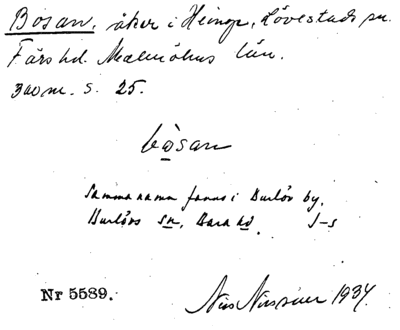 Bosan, åker i Heinge, Lövestads sn.
Färs hd. Malmöhus län.
300 m. s. 25.
bòsan
Samma namn finns i Burlöv by,
Burlövs sn, Bara hd. I-s
Nr 5589.
1934.